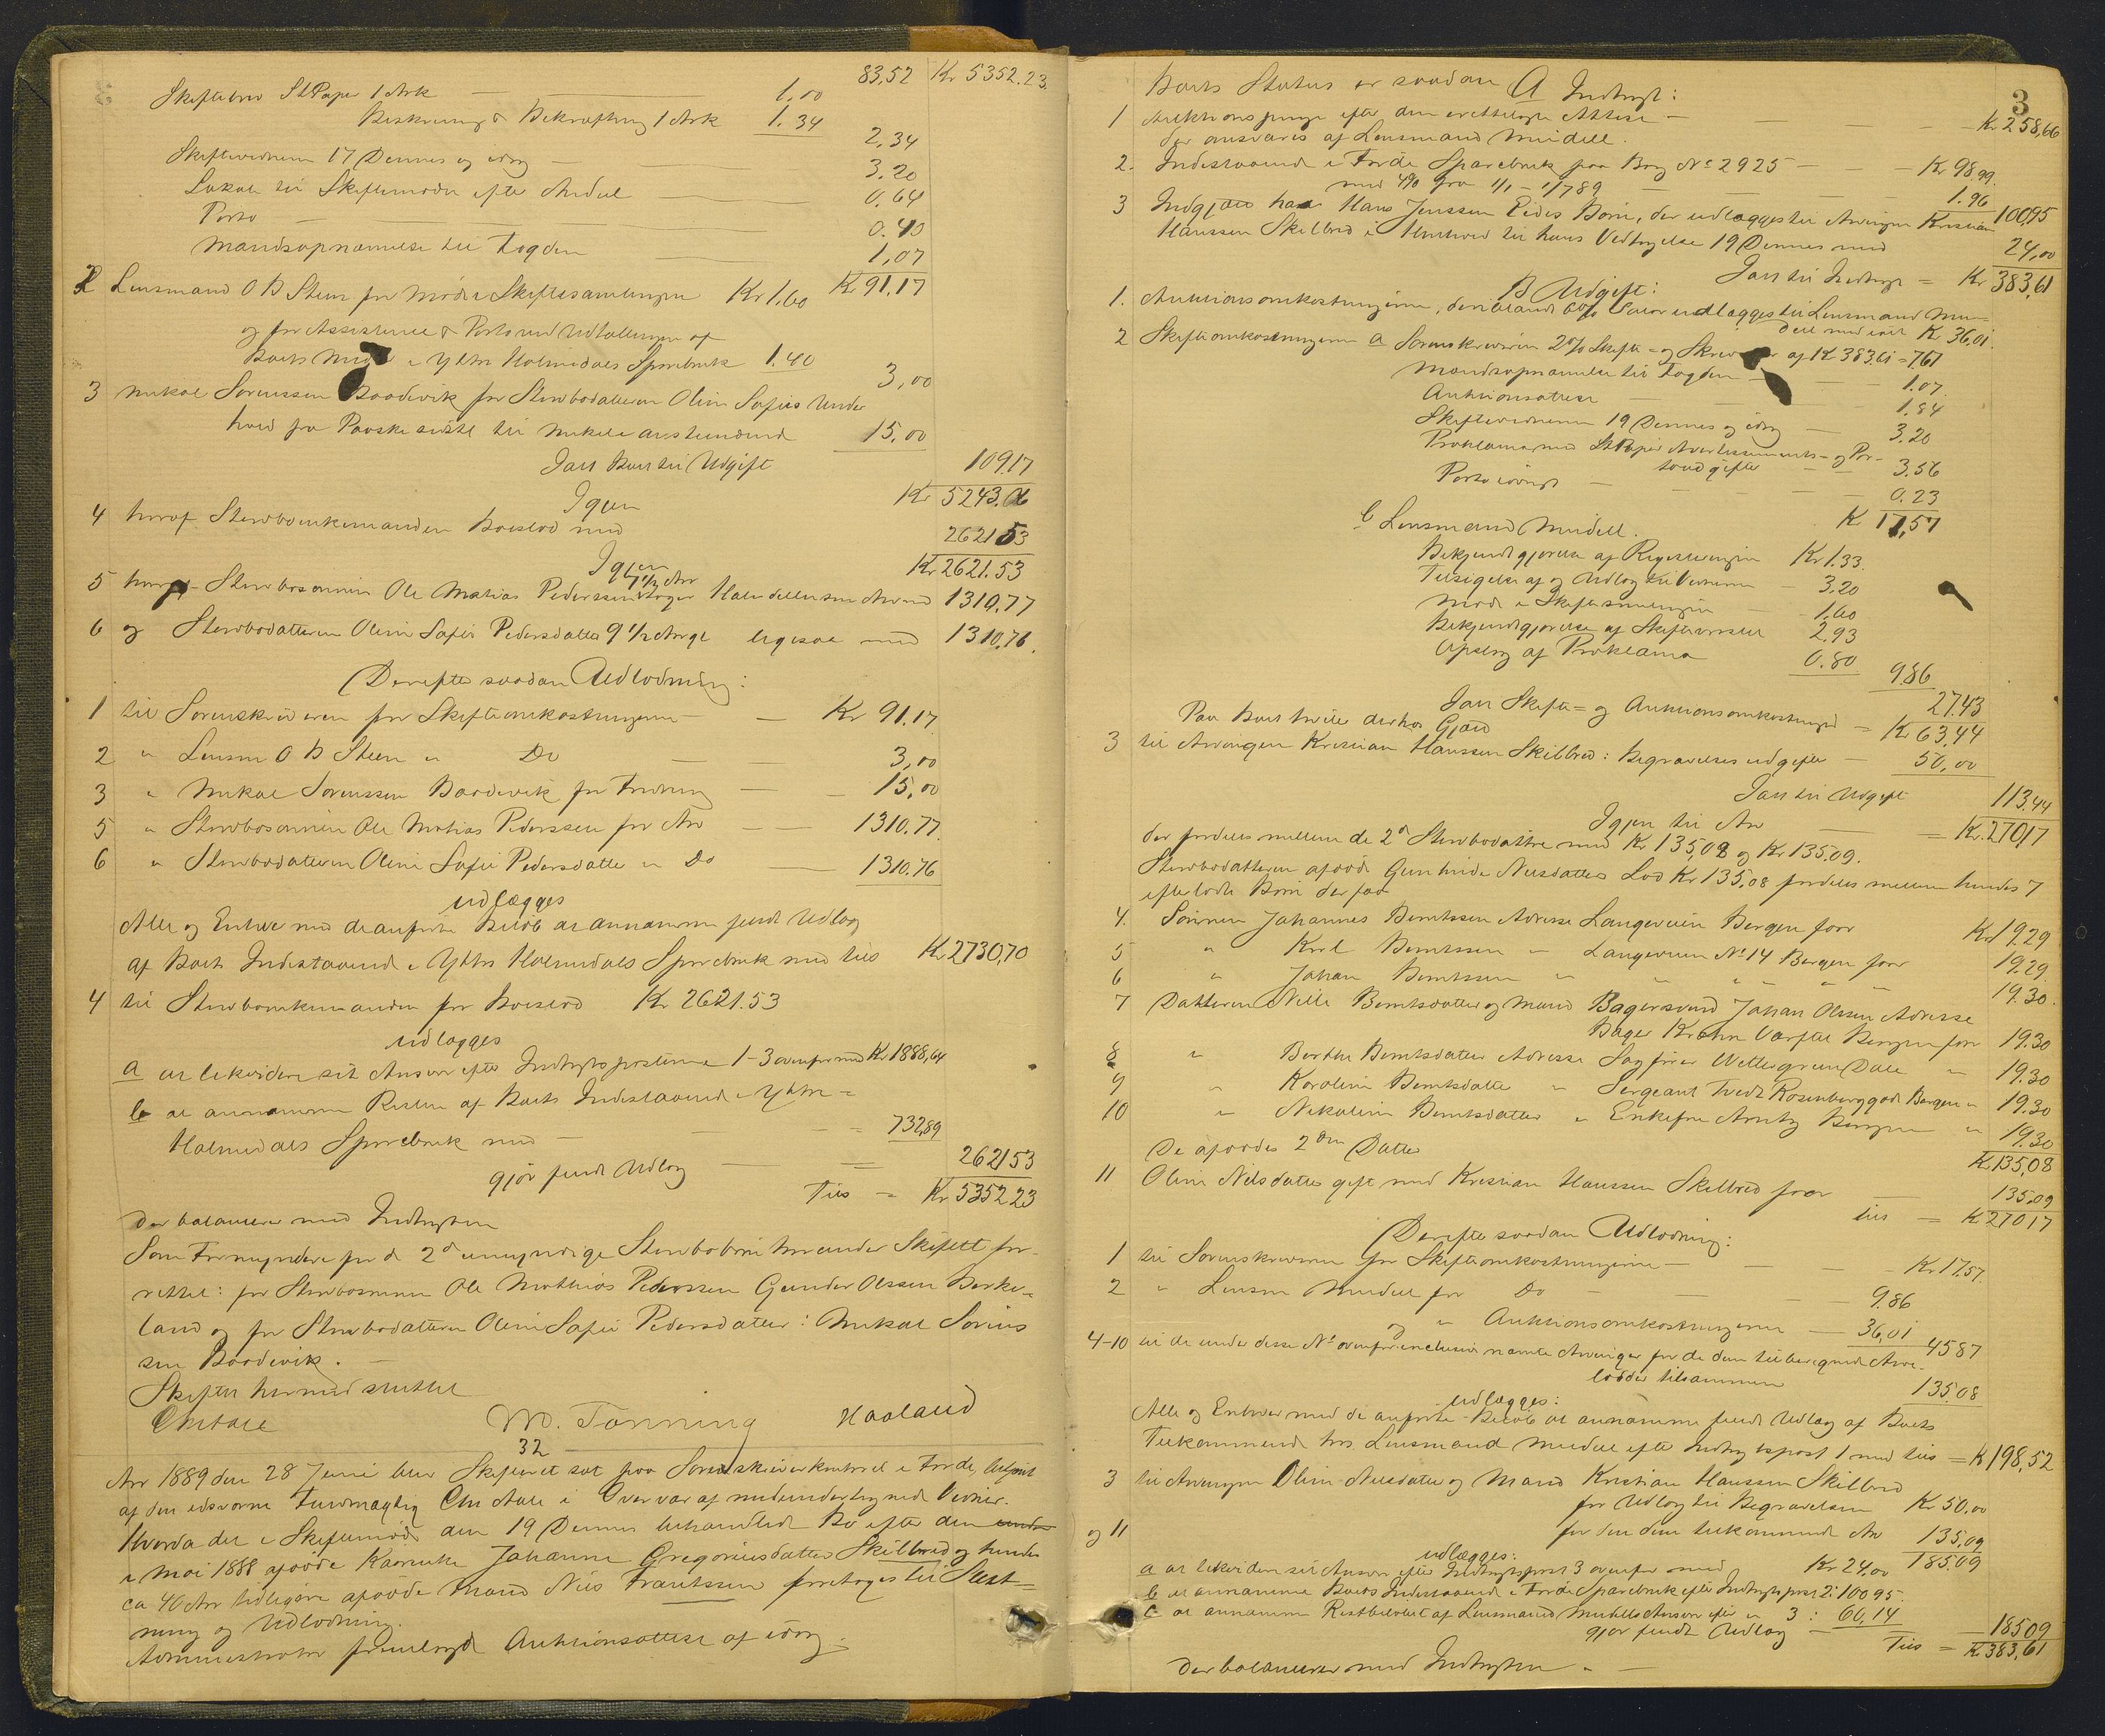 83,52 Kr 5352.23.
Skiftebrev St Papir 1 Ark — 1.00
Beskrivning & Bekræftning 1 Ark 1.34
2,34
Skiftevidnerne 17 Dennes og idag — 3.20
Lokale til Skiftemøder efter Andel — 0,64
Porto — 0.40
Mandsopnævnelse til Fogden — 1,07
Kr 91.17
2 Lensmand O B Steen for Møde i Skiftesamlingen Kr 1.60
og for Assistence & Porto ved Udtællingen af
Boets Midler i Ytre Holmedals Sparebank 1.40
3,00
3 Mikal Sørenssen Baadevik for Sterbodatteren Oline Sofies Under
hold fra Paaske sidstl til Mikeli anstundende 15,00
Iars Boets til Udgift 109,17
Igjen Kr 5243.06
4 hvoraf Sterboenkemanden Boeslod med 2621.53
Igjen Kr 2621.53
5 hvoraf Sterbosønnen Ole Matias Pederssen 7 1/2 Aar tager Halvdelen som Arv med 1310,77
6 og Sterbodatteren Oline Sofie Pedersdatter 9 1/2 Aargl ligesaa med 1310,76.
Derefter saadan Udlodning:
1 til Sorenskriveren for Skifteomkostningerne — Kr 91.17
2 " Lensm O B Steen " Do — 3,00
3 " Mikal Sørenssen Baadevik for Fordring — 15,00
5 " Sterbosønnen Ole Matias Pederssen for Arv — 1310.77.
6 " Sterbodatteren Oline Sofie Pedersdatter " Do — 1310.76
udlægges
Alle og Enhver med de anførte Beløb at annamme sendt Udlæg
af Boets Indestaaende i Ytre Holmedals Sparebank med tils Kr 2730,70
4 til Sterboenkemanden for Boeslod Kr 2621.53
udlægges
a at likvidere sit Ansvar efter Indtægtsposterne 1-3 ovenfor med Kr 1888,64
b at annamme Resten af Boets Indestaaende i Ytre =
Holmedals Sparebank med — 732,89
gjør sendt Udlæg — 2621,53
Tils = Kr 5352 23
der balancerer med Indtægten
Som Formyndere for de 2de umyndige Sterbobørn har under Skiftet for-
rettet: for Sterbosønnen Ole Mathias Pederssen Gunder Olssen Birke=
land og for Sterbodatteren Oline Sofie Pedersdatter: Mikal Sørins
sen Baadevik. —
Skiftet hermed sluttet
Chr Aall M. Tonning Haaland
32
Aar 1889 den 28 Juni blev Skifteret sat paa Sorenskriverkontoret i Førde, betjent
af den edsvorne Fuldmægtig Chr Aall i Overvær af medundertegnede Vidner.
Hvorda det i Skiftemøde den 19 Dennes behandlede Bo efter den
i Mai 1888 afdøde Kaarenke Johanne Gregoriusdatter Skilbred og hendes
ca 40 Aar tidligere afdøde Mand Nils Frantssen foretoges til Slut=
ning og Udlodning.
Administrator fremlagde Auktionsattest af idag.
3
Boets Status er saadan A Indtægt:
1 Auktionspenge efter den irettelagte Attest — Kr 258,66
der ansvares af Lensmand Mindell.
2. Indestaaende i Førde Sparebank paa Bog No 2925 — Kr 98.99.
med 4% fra 1/1 - 1/7 89 — 1.96
100,95
3 Indgjæld hos Hans Jenssen Eides Børn, der udlægges til Arvingen Kristian
Hanssen Skilbred i Henhold til hans Vedtagelse 19 Dennes med 24,00
Iars til Indtægt = Kr 383,61
B Udgift:
1. Auktionsomkostningerne, deriblandt 60/0 Salær udlægges til Lensmand Min-
dell med ialt Kr 36,01.
2 Skifteomkostningerne a Sorenskriveren 2% Skifte- og Skriver af Kr 383,61 = 7,67
Mandsopnævnelse til Fogden — 1.07.
Auktionsattest — 1.84
Skiftevidnerne 19 Dennes og idag — 3.20
Proklama med St Papir Avertissements- og Por-
toudgifter — 3.56
Porto iøvrigt — 0.23
Kr 17,57
b Lensmand Mindell.
Bekjendtgjørelse af Registreringen Kr 1.33.
Tilsigelse af og Udlæg til Vidnerne — 3.20
Møde i Skiftesamlingen — 1.60
Bekjendtgjørelse af Skiftevarsel 2,93
Opslag af Proklama 0.80
9.86
27.43
Iars Skifte- og Auktionsomkostninger = Kr 63,44
Paa Boet hvile derhos Gjæld
3 til Arvingen Kristian Hanssen Skilbred: Begravelsesudgifter — 50,00
Iars til Udgift 113,44
Igjen til Arv — = Kr. 270,17
der fordeles mellem de 2de Sterbodøttre med Kr 135,08 og Kr 135.09.
Sterbodatteren afdøde Gunhilde Nilsdatters Lod Kr 135,08 fordeles mellem hendes 7
efterladte Børn der faar
4. Sønnen Johannes Berntssen Adresse Langeveien Bergen faar Kr 19.29
5 " Karl Berntssen " Langeveien No 14 Bergen faar 19.29
6 " Johan Berntssen " " " " " 19.30.
7 Datteren Nille Berntsdatter og Mand Bagersvend Johan Olsen Adresse
Bager Krohn Værftet Bergen faar 19.30
8 " Berthe Berntsdatter Adresse Sagfører Wettergreen Dale " 19.30
9 " Karoline Berntsdatter " Sergeant Tvedt Rosenberggad Bergen " 19.30
10 " Nikoline Berntsdatter " Enkefru Arntz Bergen " 19.30
Kr 135,08
De afdødes 2den Datter
11 Oline Nilsdatter gift med Kristian Hanssen Skilbred faar — 135,09
tils = Kr 270 17
Derefter saadan Udlodning:
1 til Sorenskriveren for Skifteomkostningerne — Kr 17.57.
2 " Lensm Mindell for Do — 9.86
og " Auktionsomkostningerne — 36,01 45 87
4-10 til de under disse No ovenfor inclusive nævnte Arvinger for de dem tilberegnede Arve-
lodder tilsammen 135.08
udlægges:
Alle og Enhver med de anførte Beløb at annamme sendt Udlæg af Boets
Tilkommende hos Lensmand Mindell efter Indtægtspost 1 med tils = Kr 198,52
3 til Arvingen Oline Nilsdatter og Mand Kristian Hanssen Skilbred
for Udlæg til Begravelsen Kr 50.00
og 11 for den dem tilkommende Arv 135,09
185.09
udlægges:
a at likvidere sit Ansvar efter Indtægtspost 3 ovenfor med Kr 24,00
b at annamme Boets Indestaaende i Førde Sparebank efter Indtægtspost 2: 100 95.
c at annamme Restbeløbet af Lensmand Mindells Ansvar efter " 3: 60,14
gjør sendt Udlæg — 185 09
Tils = Kr 383,61
der balancerer med Indtægten. —